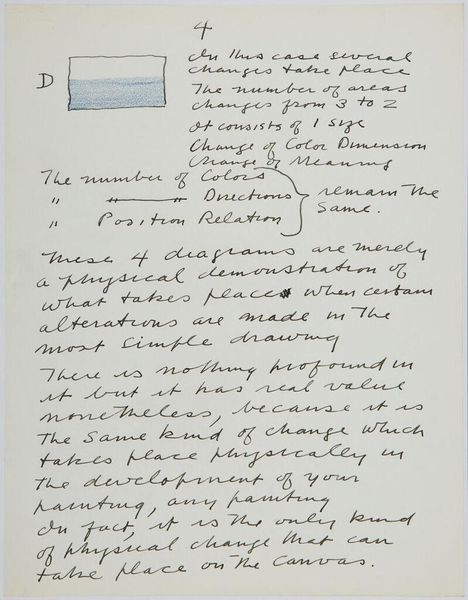 4
D
In this case several
changes take place
The number of areas
changes from 3 to 2
It consists of 1 size
Change of Color Dimension
Change of Meaning
The number of Colors
" —"— Directions
" Position Relation
remain the
same.
These 4 diagrams are merely
a physical demonstration of
what takes place when certain
alterations are made in the
most simple drawing
There is nothing profound in
it but it has real value
nonetheless, because it is
the same kind of change which
takes place physically in
the development of your
painting, any painting
In fact, it is the only kind
of physical change that can
take place on the canvas.